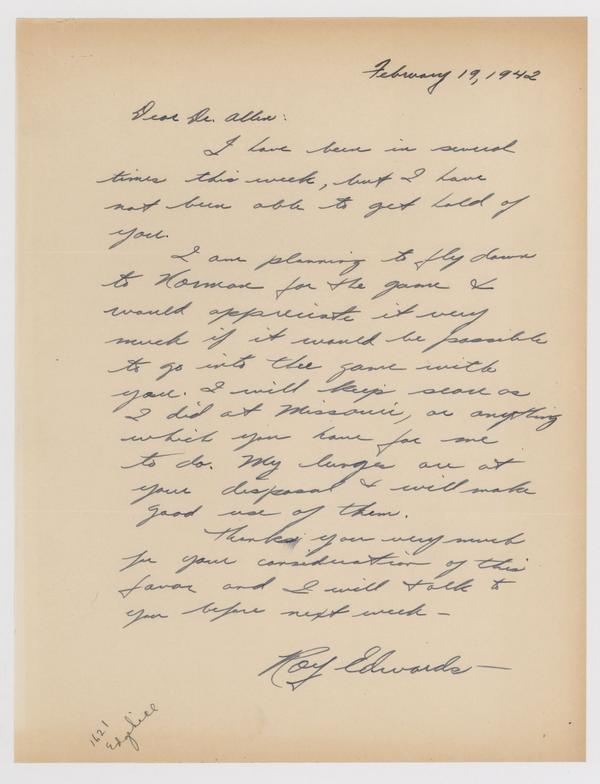 February 19, 1942
Dear Dr. Allen:
I have been in several
times this week, but I have
not been able to get hold of
you.
I am planning to fly down
to Norman for the game &
would appreciate it very
much if it would be possible
to go into the game with
you. I will keep score as
I did at Missouri, or anything
which you have for me
to do. My lungs are at
your disposal & will make
good use of them.
Thanks you very much
for your consideration of this
favor and I will talk to
you before next week –
Roy Edwards –
1621
Edgehill